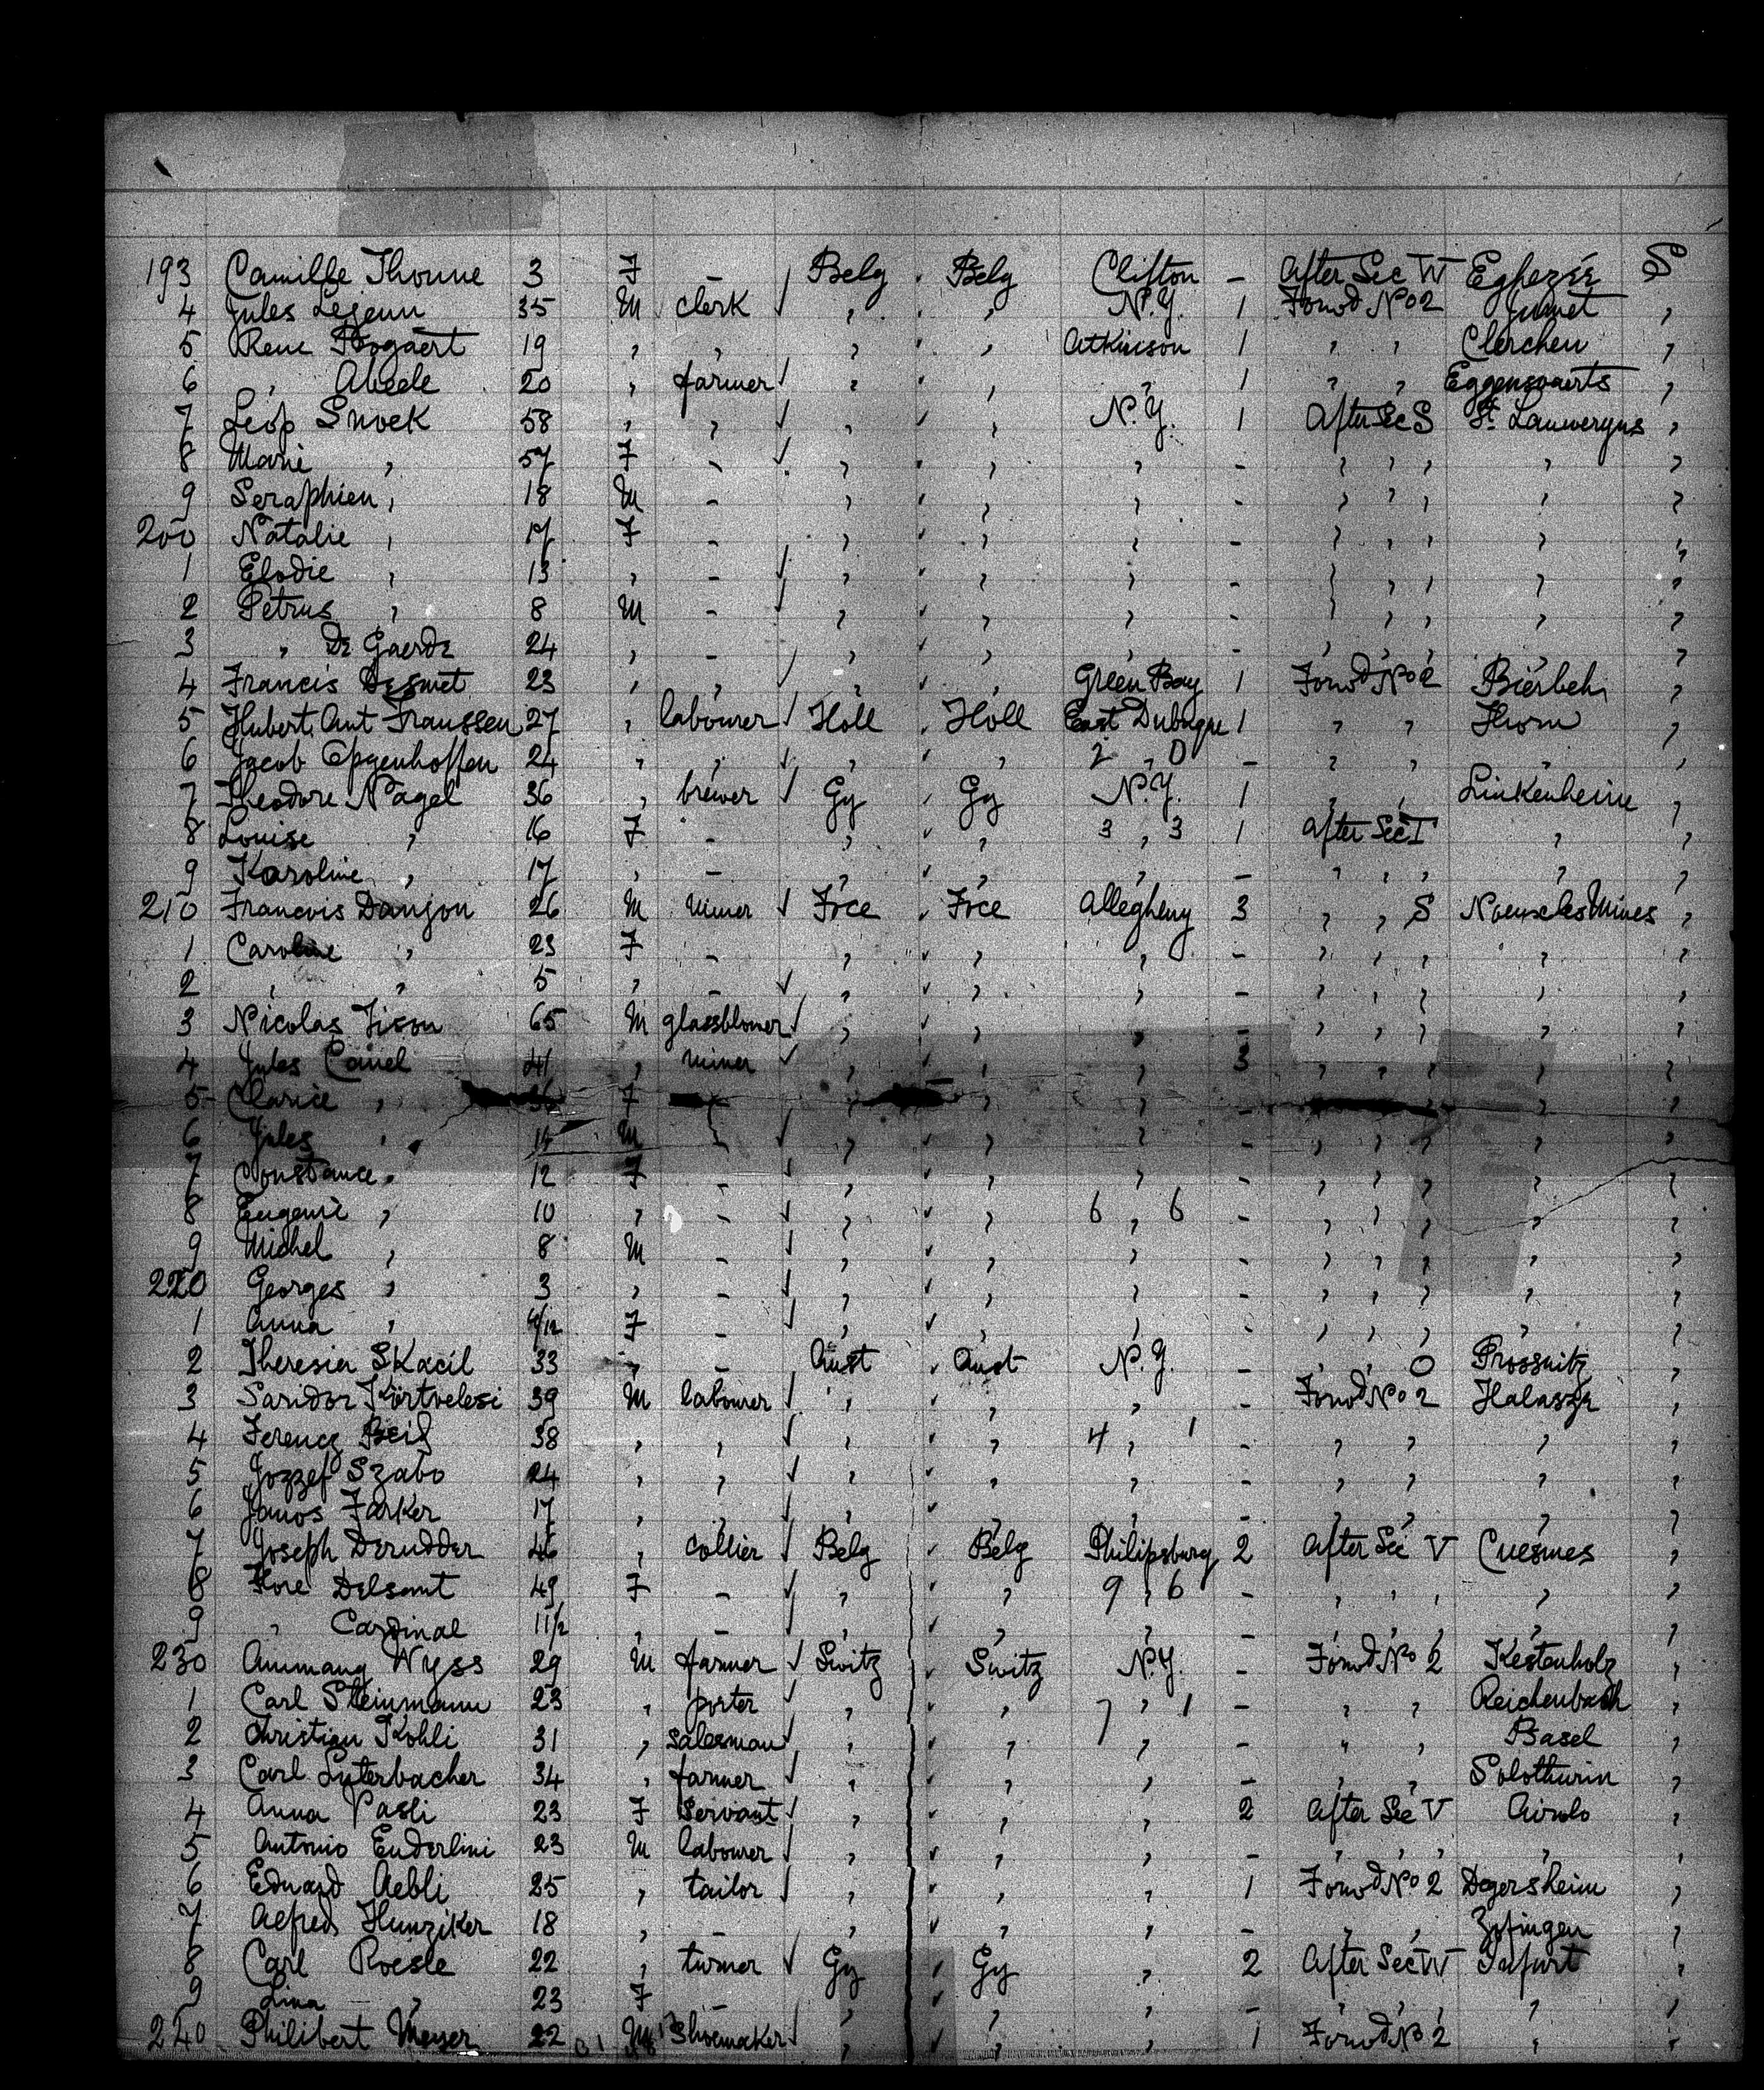 193 Camille Thonne 3 F - Belg Belg Clifton - After Sec W Eghezée S
4 Jules Lejeun 35 M clerk " " N.Y. 1 Forwd No 2 Jumet "
5 Rene Bogaert 19 " " " " Atkinson 1 " " Clerchen "
6 " Abeele 20 " farmer " " " 1 " " Eggenwaerts "
7 Leop Snoek 58 " " " " N.Y. 1 After Sec S St. Lauweryns "
8 Marie " 57 F - " " " - " " " " "
9 Seraphien " 18 M - " " " - " " " " "
200 Natalie " 17 F - " " " - " " " " "
1 Elodie " 13 " - " " " - " " " " "
2 Petrus " 8 M - " " " - " " " " "
3 " De Gaerde 24 " - " " " - " " " " "
4 Francis Desmet 23 " " " " Green Bay 1 Forwd No 2 "
5 Hubert Ant Franssen 27 " labourer Holl Holl East Dubuque 1 " " Thorn "
6 Jacob Opgenhoffen 24 " " " " 2 " 0 - " " " "
7 Theodore Nagel 36 " brewer Gy Gy N.Y. 1 " " Linkenheim "
8 Louise " 16 F - " " 3 " 3 1 After Sec T " "
9 Karoline " 17 " - " " " - " " " " "
210 Francois Danjou 26 M miner Frce Frce Allegheny 3 " " S Noeux les Mines "
1 Caroline " 23 F - " " " - " " " " "
2 " " 5 " - " " " - " " " " "
3 Nicolas Tison 65 M glassblower " " " - " " " " "
4 Jules Canel 41 " miner " " " 3 " " " " "
5 Clarice " F - " " " - " " " " "
6 Jules " 14 M " " " - " " " " "
7 Constance " 12 F - " " " - " " " " "
8 Eugenie " 10 " - " " 6 " 6 - " " " " "
9 Michel " 8 M - " " " - " " " " "
220 Georges " 3 " - " " " - " " " " "
1 Anna " F - " " " - " " " " "
2 Theresia Skacil 33 " - Aust Aust N.Y. - " " O Prossnitz "
3 Saridor Körtvelesi 39 M labourer " " " - Forwd No 2 Halasza "
4 Ferencz Beil 38 " " " " 4 " 1 - " " " "
5 Jozzef Szabo 24 " " " " " - " " " "
6 Janos Farker 17 " " " " " - " " " "
7 Joseph Derudder 46 " collier Belg Belg Philipsburg 2 After Sec V Cuesmes "
8 Flore Delsamt 49 F - " " 9 " 6 - " " " " "
9 " Cardinal 11/2 " - " " " - " " " " "
230 Ammang Wyss 29 M farmer Switz Switz N.Y. - Forwd No 2 Kestenholz "
1 Carl Steinmann 23 " porter " " 7 " 1 - " " Reichenbach "
2 Christian Kohli 31 " salesman " " " - " " Basel "
3 Carl Luterbacher 34 " farmer " " " - " " Solothurin "
4 Anna Vasli 23 F Servant " " " 2 After Sec V Airolo "
5 Antonio Enderlini 23 M labourer " " " - " " " " "
6 Eduard Aebli 25 " tailor " " " 1 Forwd No 2 Degersheim "
7 Alfred Hunziker 18 " - " " " - " " Zofingen "
8 Carl Roesle 22 " turner Gy Gy " 2 After Sec W "
9 Lina " 23 F - " " " - " " " " "
240 Philibert Meyer 22 M Shoemaker " " " 1 Forwd No 2 " "